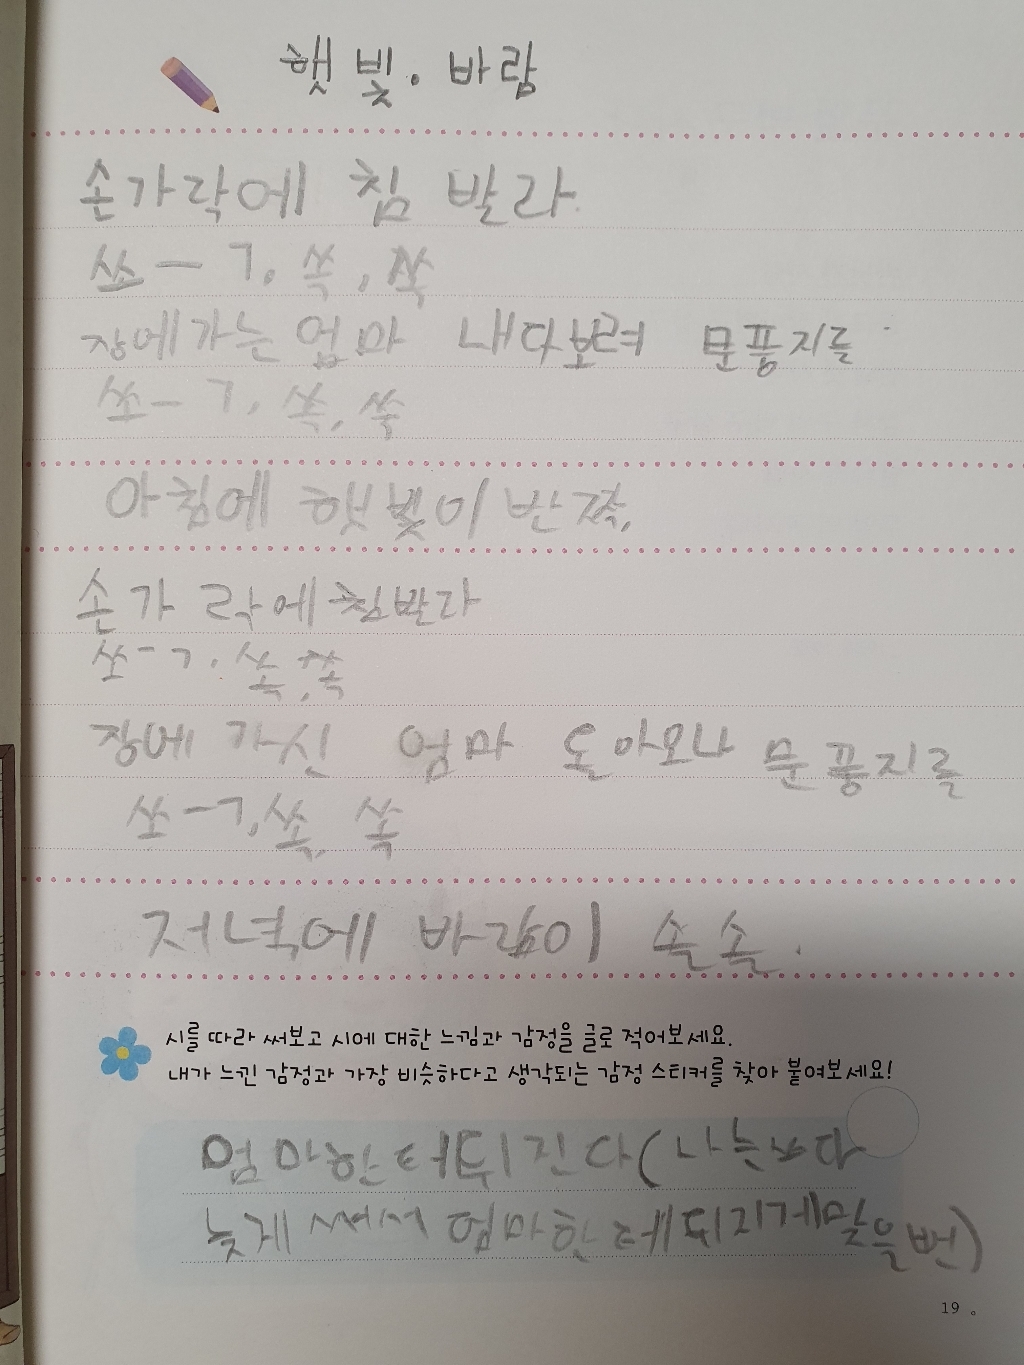 햇빛. 바람
손가락에 침 발라.
쏘-ㄱ, 쏙, 쏙
장에 가는 엄마 내다보려 문풍지를
쏘-ㄱ, 쏙, 쏙
아침에 햇빛이 반짝,
손가락에 침발라
쏘-ㄱ. 쏙, 쏙
장에 가신 엄마 돌아오나 문풍지를
쏘-ㄱ, 쏙, 쏙
저녁에 바람이 솔솔.
시를 따라 써보고 시에 대한 느낌과 감정을 글로 적어보세요.
내가 느낀 감정과 가장 비슷하다고 생각되는 감정 스티커를 찾아 붙여보세요!
엄마한터 뒤진다(나는쓰다
늦게 써서 엄마한테 디지게 맞을 뻔)
19